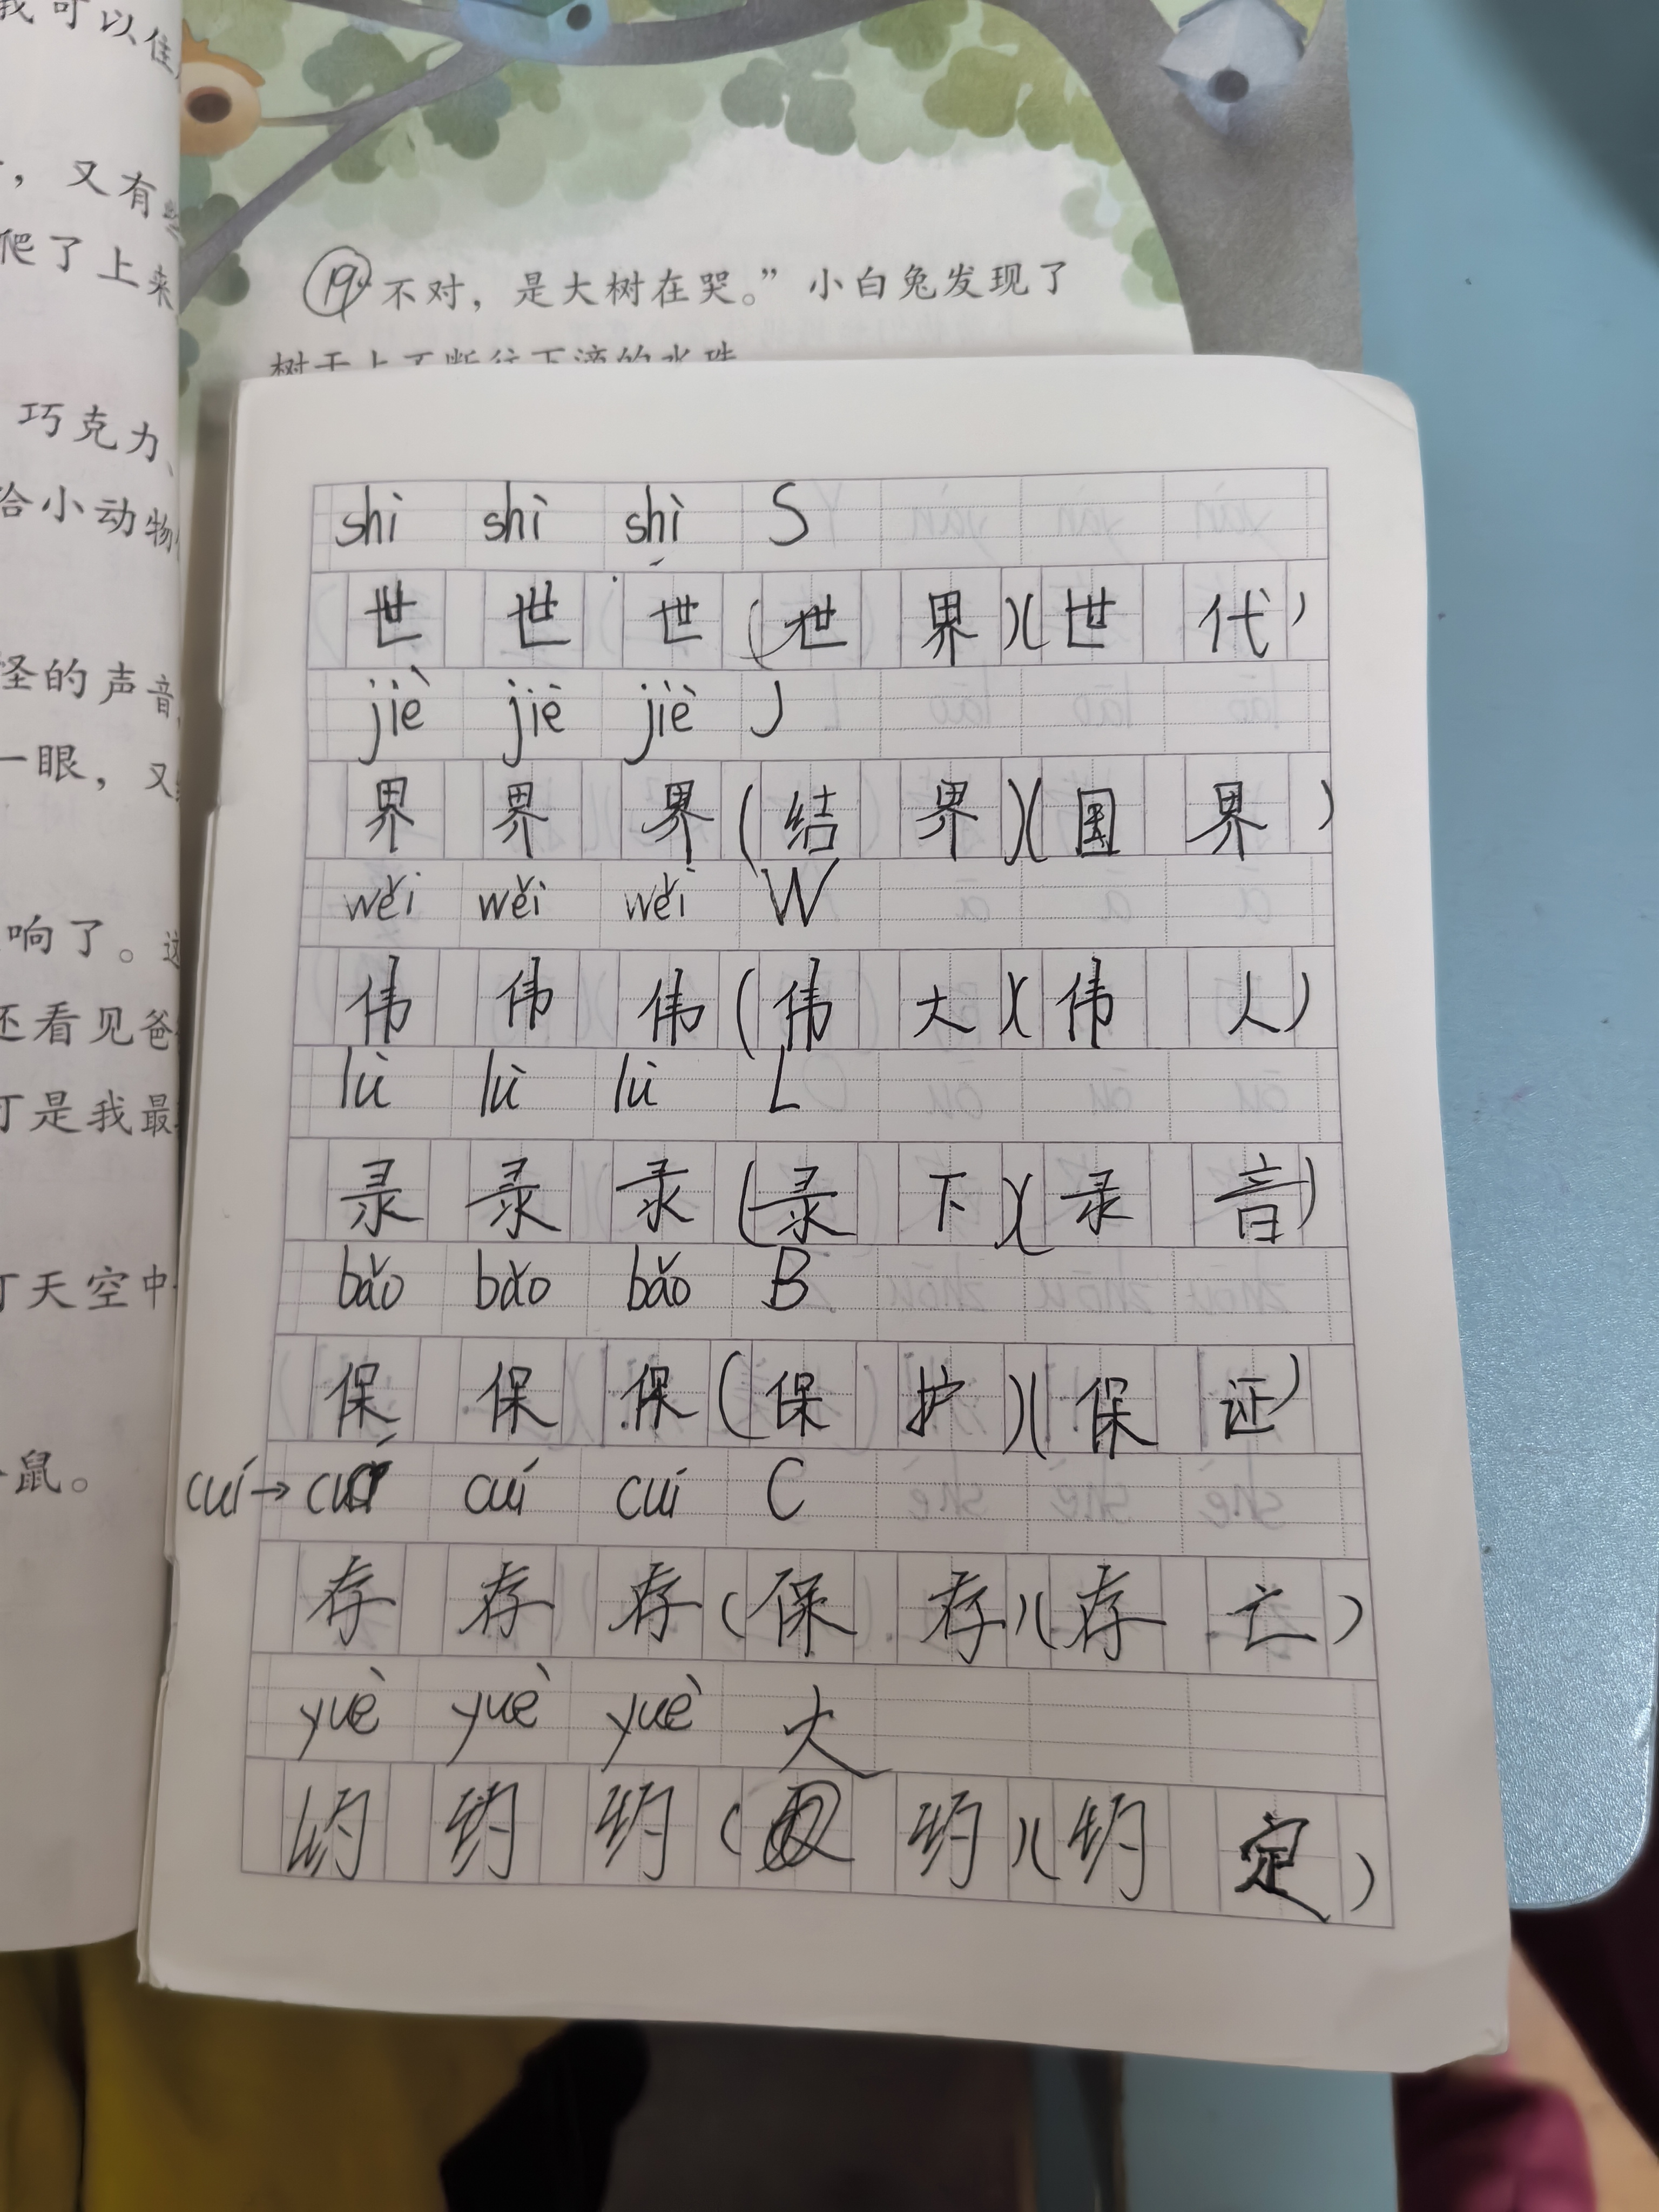 我可以住
，又有
爬了上来
巧克力、
给小动物
怪的声音
一眼，又
响了。这
还看见爸
可是我最
丁天空中
鼠。
19 不对，是大树在哭。”小白兔发现了
树干上不断往下滴的水珠
shì shì shì S
世 世 世 (世 界)(世 代)
jiè jiè jiè J
界 界 界 (结 界)(国 界)
wěi wěi wěi W
伟 伟 伟 (伟 大)(伟 人)
lù lù lù L
录 录 录 (录 下)(录 音)
bǎo bǎo bǎo B
保 保 保 (保 护)(保 证)
cuí→ cuí cuí cuí C
存 存 存 (保 存)(存 亡)
yuè yuè yuè 大
约 约 约 ( 约)(约 定)